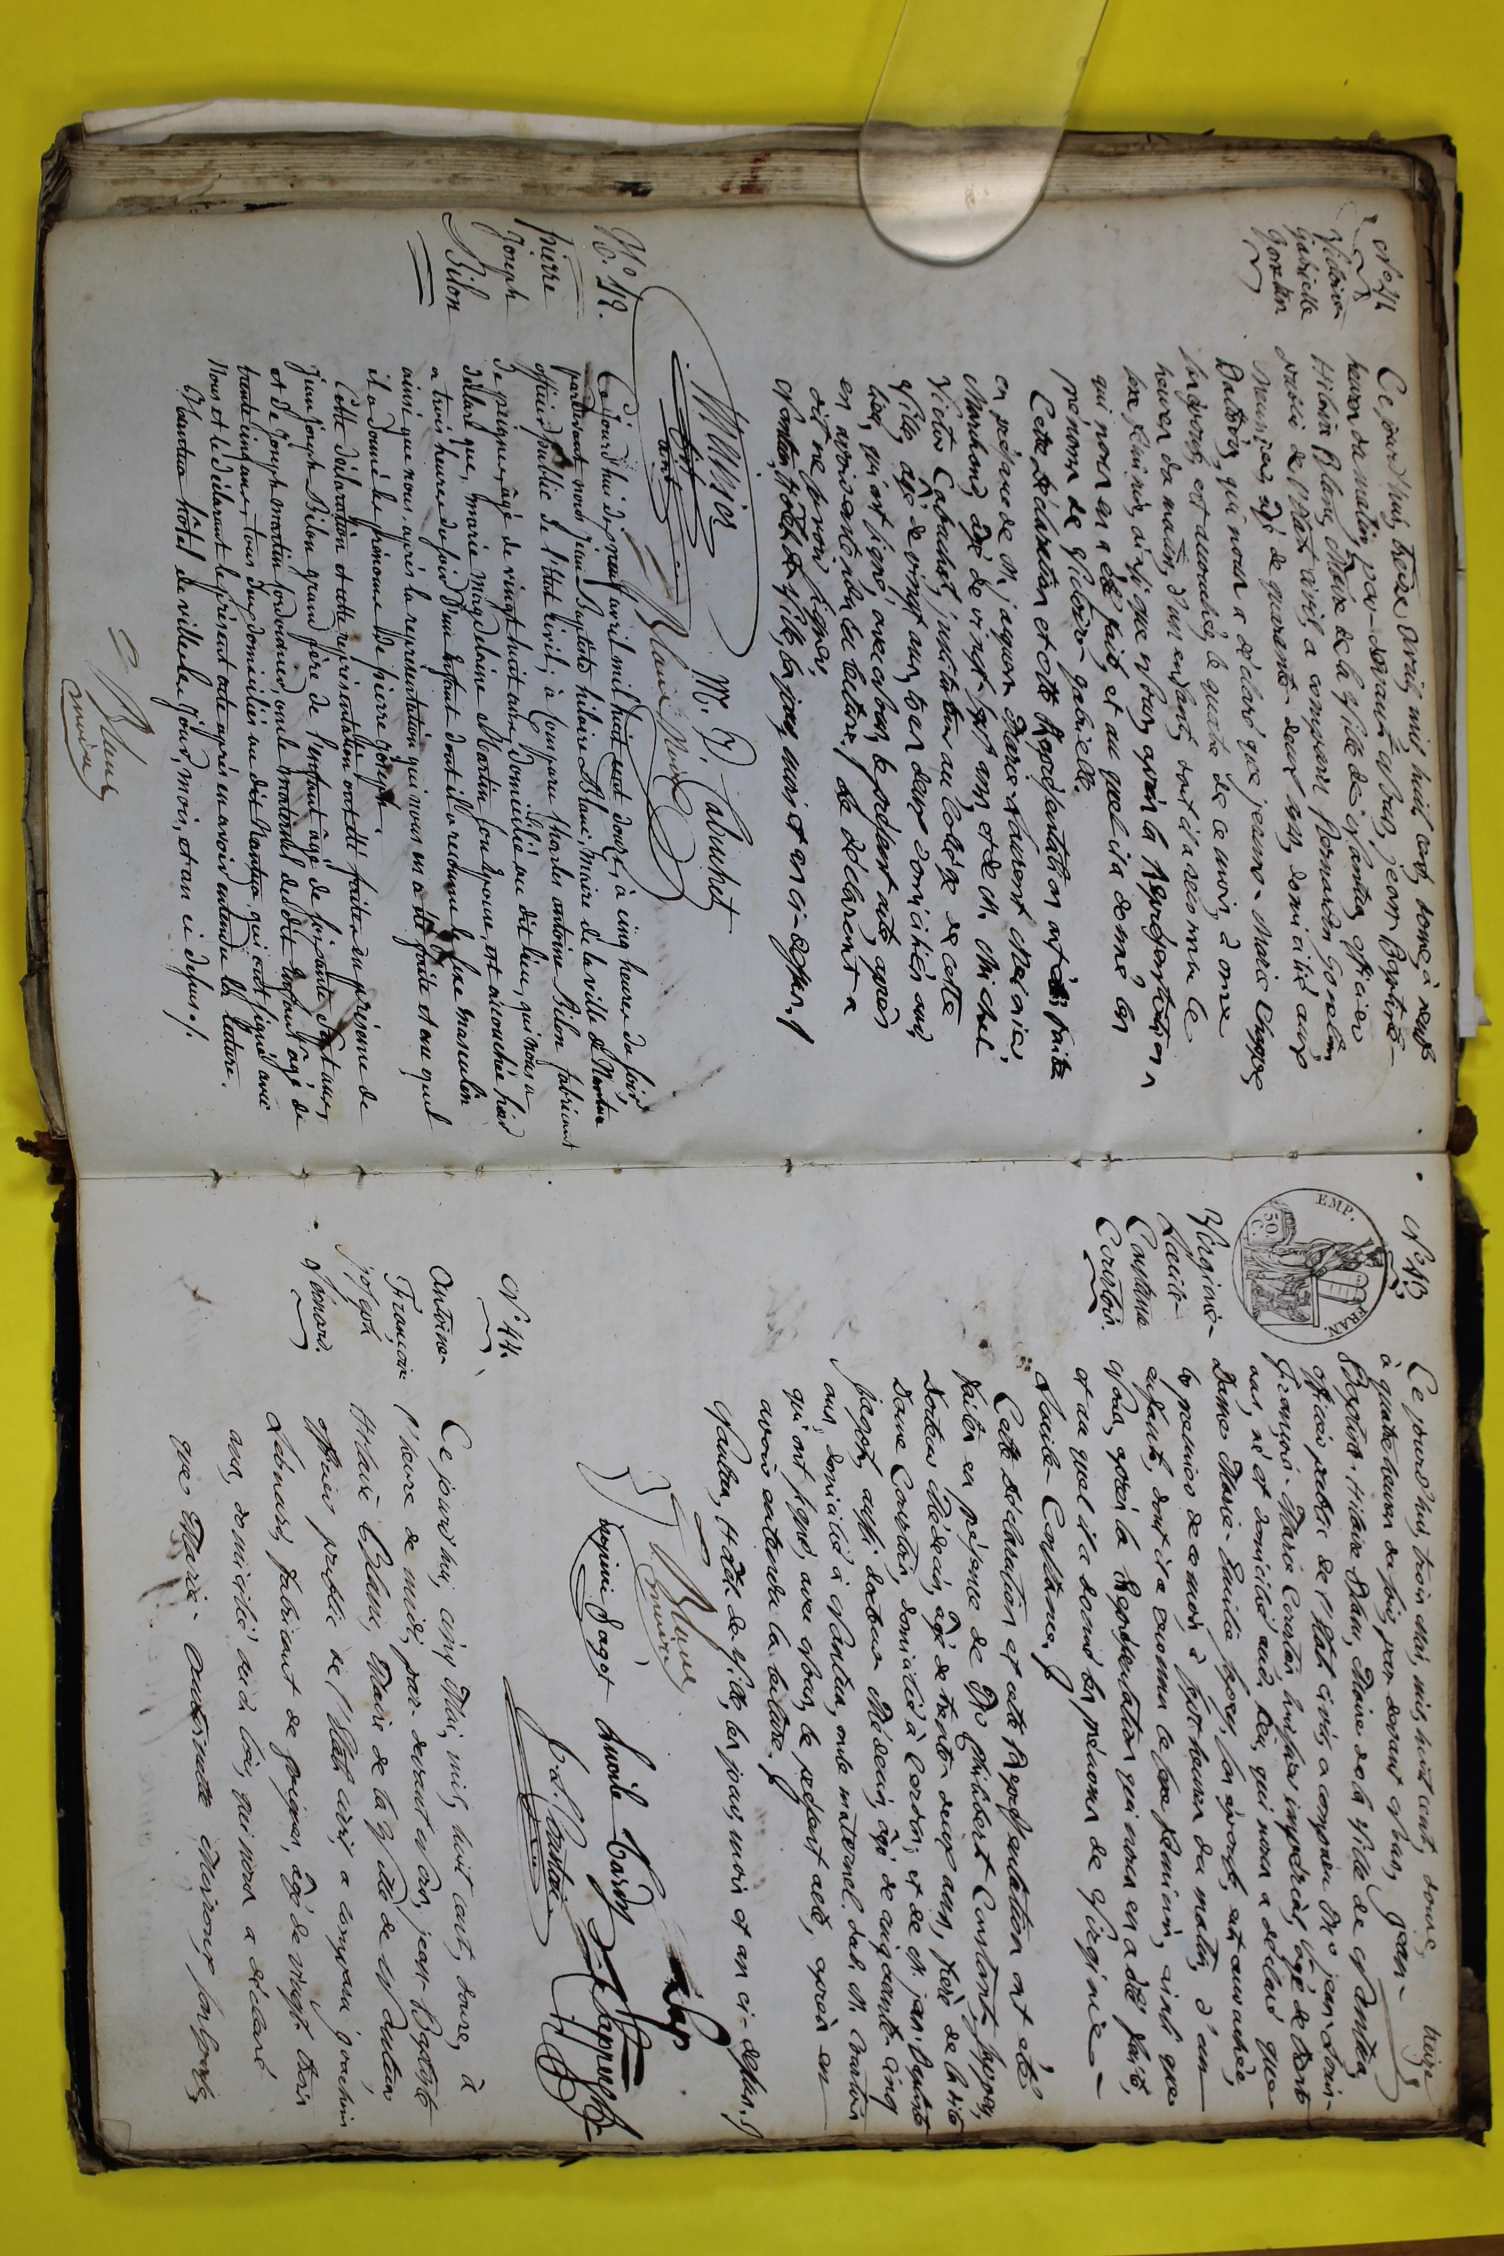 N.° 11
Victoire
gabrielle
gorelin
Ce jourd'hui, treize avril, mil huit cent, douze, à neuf
heures du matin, par-devant Nous, jean Baptiste-
Hilaire Blanc, Maire de la Ville de Nantua, officier
public de l'état civil, a comparu Bernardin gorelin
Meunier, âgé de quarante-deux ans, domicilié aux
Battoirs, qui nous a déclaré que jeanne-Marie
son épouse, est accouchée, le quatre de ce mois, à onze
heures du matin, d'un enfant, dont il a reconnu le
sexe féminin, ainsi que Nous, après la Représentation
qui nous en a été faite, et au quel il a donné les
prénoms de Victoire gabrielle.
Cette déclaration et cette Représentation ont été faites
en présence de M. jaques Marie-Laurent Mercier,
Marchand, âgé de vingt-sept ans, et de M. Michel
Victor Cabuchet, instituteur au Collège de cette
Ville, âgé de vingt ans, tous deux domiciliés aud.
lieu, qui ont signé, avec Nous, le présent acte, après
en avoir entendu la lecture, le déclarant a
dit ne savoir signer.
Nantua, Hôtel de Ville, les jour, mois et an ci-dessus.
Mercier
M. V. Cabuchet
Blanc Maire
N.° 12.
pierre
Joseph
Bilon
Ce jourd'hui dix neuf avril mil huit cent douze, à cinq heures du soir,
pardevant nous Jean Baptiste hilaire Blanc, maire de la ville de Nantua
officier public de l'état civil, à comparu Charles antoine Bilon fabricant
de peignes, âgé de vingt huit ans, domicilié au dit lieu, qui nous a
déclaré que, marie magdelaine Martin son épouse, est accouchée hier
a trois heures du soir d'un enfant dont il a reconnu le sexe masculin
ainsi que nous, après la représentation qui nous en a été faite et au quel
il a donné les prénoms de pierre joseph.
Cette déclaration et cette représentation ont été faites en présence de
Jean joseph Bilon grand père de l'enfant âgé de soixante sept ans,
et de Joseph martin cordonnier, oncle maternel dudit enfant âgé de
trente cinq ans, tous deux domiciliés au dit Nantua, qui ont signé avec
Nous et le déclarant le présent acte après en avoir entendu la lecture.
Nantua hôtel de ville les jour, mois, et an ci dessus.
Blanc
maire
N.° 13
EMP. FRAN.
50 C.
Virginie-
Lucile-
Constance
Corrotin.
Ce jourd'hui, trois mai, mil, huit cent, douze,
à quatre heures du soir, par devant Nous, jean-
Baptiste-Hilaire Blanc, Maire de la Ville de Nantua,
officier public de l'état civil, a comparu M.e jean-Louis-
françois-Marie Corrotin, huissier impérial, âgé de trente
ans, né et domicilié aud. lieu, qui nous a déclaré que
Dame Marie-Emilie son épouse, est accouchée,
le premier de ce mois, à sept heures du matin, d'un
enfant, dont il a reconnu le sexe féminin, ainsi que
Nous, après la Représentation qui nous en a été faite,
et au quel il a donné les prénoms de Virginie-
Lucile-Constance.
Cette déclaration et cette Représentation ont été
faites en présence de M.
Docteur Médecin, âgé de trente deux ans, frère de la dite
Dame domicilié à et de M. jean-Baptiste
aussi docteur Médecin, âgé de cinquante-cinq
ans, domicilié à Nantua, oncle maternel dud. M. Corrotin
qui ont signé, avec Nous, le présent acte, après en
avoir entendu la lecture.
Nantua, Hôtel de Ville, les jour, mois et an ci-dessus.
Blanc
maire
N.° 14.
Antoine-
François
joseph
Ce jourd'hui, cinq Mai, mil, huit cent, douze, à
l'heure de midi, par-devant Nous, jean-Baptiste
Hilaire Blanc, Maire de la Ville de Nantua,
officier public de l'état civil, a comparu joachim
fabricant de peignes, âgé de vingt trois
ans, domicilié audit lieu, qui nous a déclaré
que Marie-Antoinette son épouse,